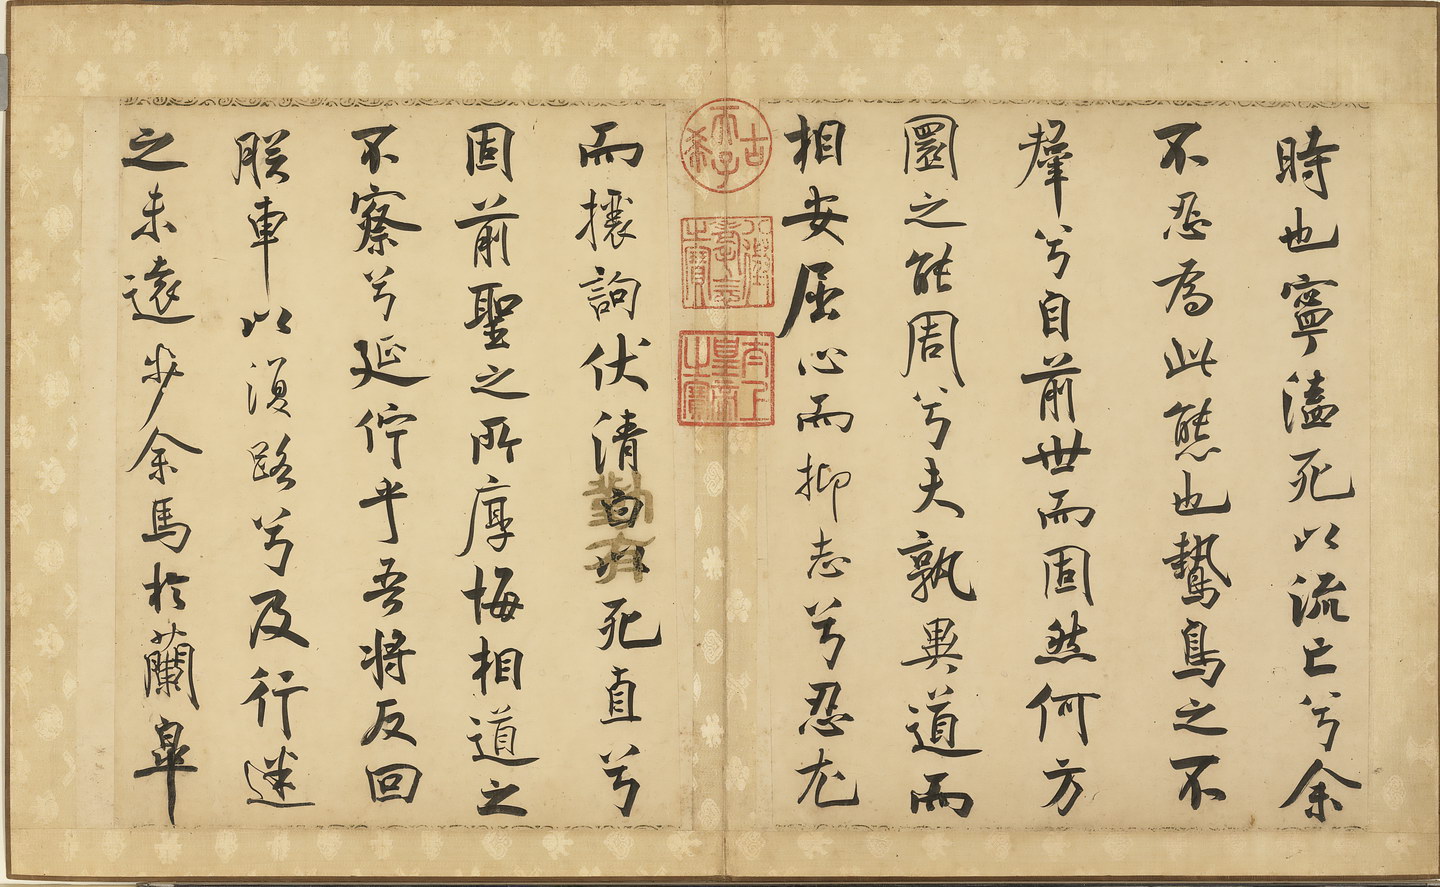 時也寧溘死以流亡兮余
不忍為此態也鷙鳥之不
羣兮自前世而固然何方
圜之能周兮夫孰異道而
相安屈心而抑志兮忍尤
古希天子
八徵耄念之寶
太上皇帝之寶
而攘訽伏清白以死直兮
勤有
固前聖之所厚悔相道之
不察兮延佇乎吾將反回
朕車以復路兮及行迷
之未遠步余馬於蘭皐